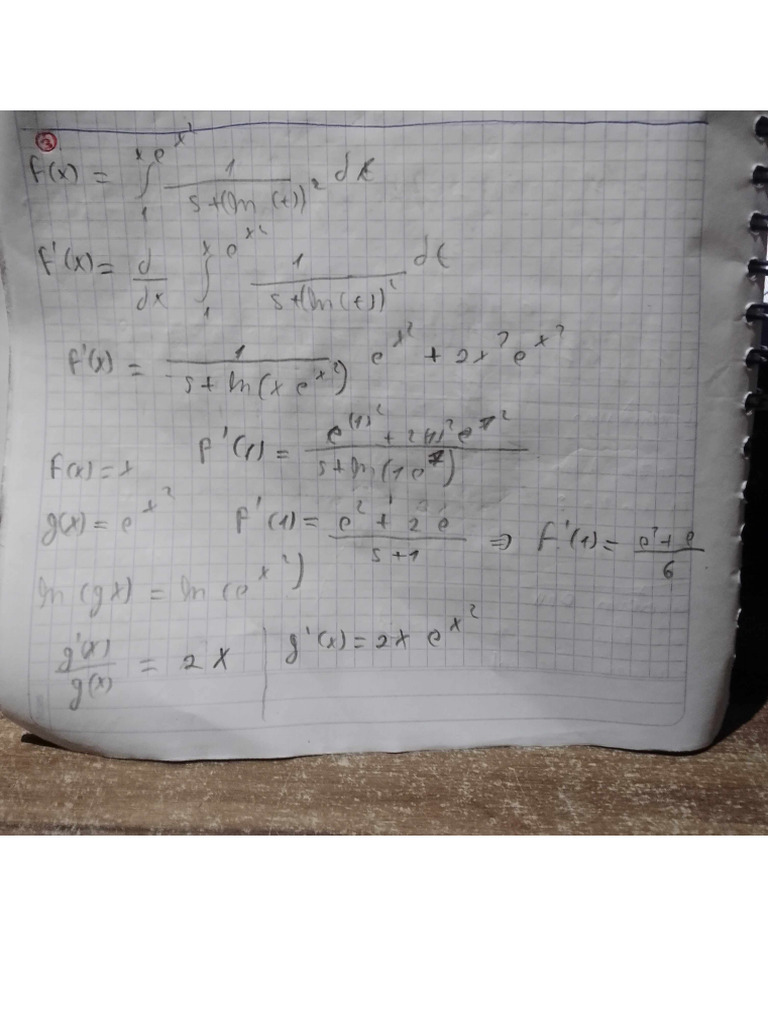 ③
f(x) = ∫₁^{x e^{x²}} 1/(5+(ln(t))²) dt
f'(x) = d/dx ∫₁^{x e^{x²}} 1/(5+(ln(t))²) dt
f'(x) = 1/(5+ln(x e^{x²})) e^{x²} + 2x² e^{x²}
f'(1) = (e^{(1)²} + 2(1)² e^{1²})/(5+ln(1e^{1}))
f(x) = x
g(x) = e^{x²}
f'(1) = (e² + 2e)/(5+1) ⇒ f'(1) = (e²+e)/6
ln(gx) = ln(e^{x²})
g'(x)/g(x) = 2x | g'(x) = 2x e^{x²}